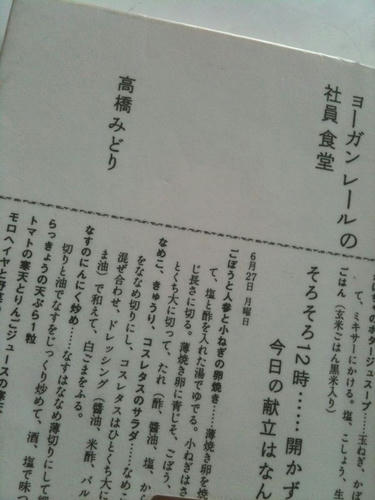 ヨーガンレールの
社員食堂
高橋みどり
のポタージュスープ……玉ねぎ、かぼ
て、ミキサーにかける。塩、こしょう、生
ごはん（玄米ごはん黒米入り）
そろそろ12時……開かず
今日の献立はなん
6月27日 月曜日
ごぼうと人参と小ねぎの卵焼き……薄焼き卵を焼
て、塩と酢を入れた湯でゆでる。小ねぎはさ
じ長さに切る。薄焼き卵に青じそ、ごぼう、
とくち大に切って、たれ（酢、醤油、塩、か
なめこ、きゅうり、コスレタスのサラダ……なめこ
をななめ切りにし、コスレタスはひとくち大に
混ぜ合わせ、ドレッシング（醤油、米酢、バル
ま油）で和えて、白ごまをふる。
なすのにんにく炒め……なすはななめ薄切りにして
切りと油でなすをじっくり炒めて、酒、塩で味つ
らっきょうの天ぷら1粒
トマトの寒天とりんごジュースの寒天
モロヘイヤと野菜